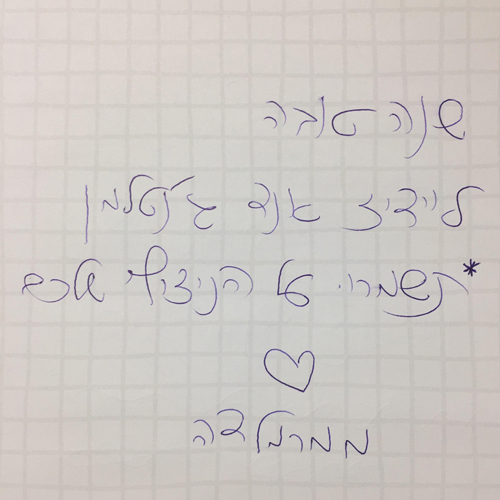 שנה טובה
ליידיז אנד ג'נטלמן
*תשמרו על הניצוץ שלכם
♡
ממרמלדה